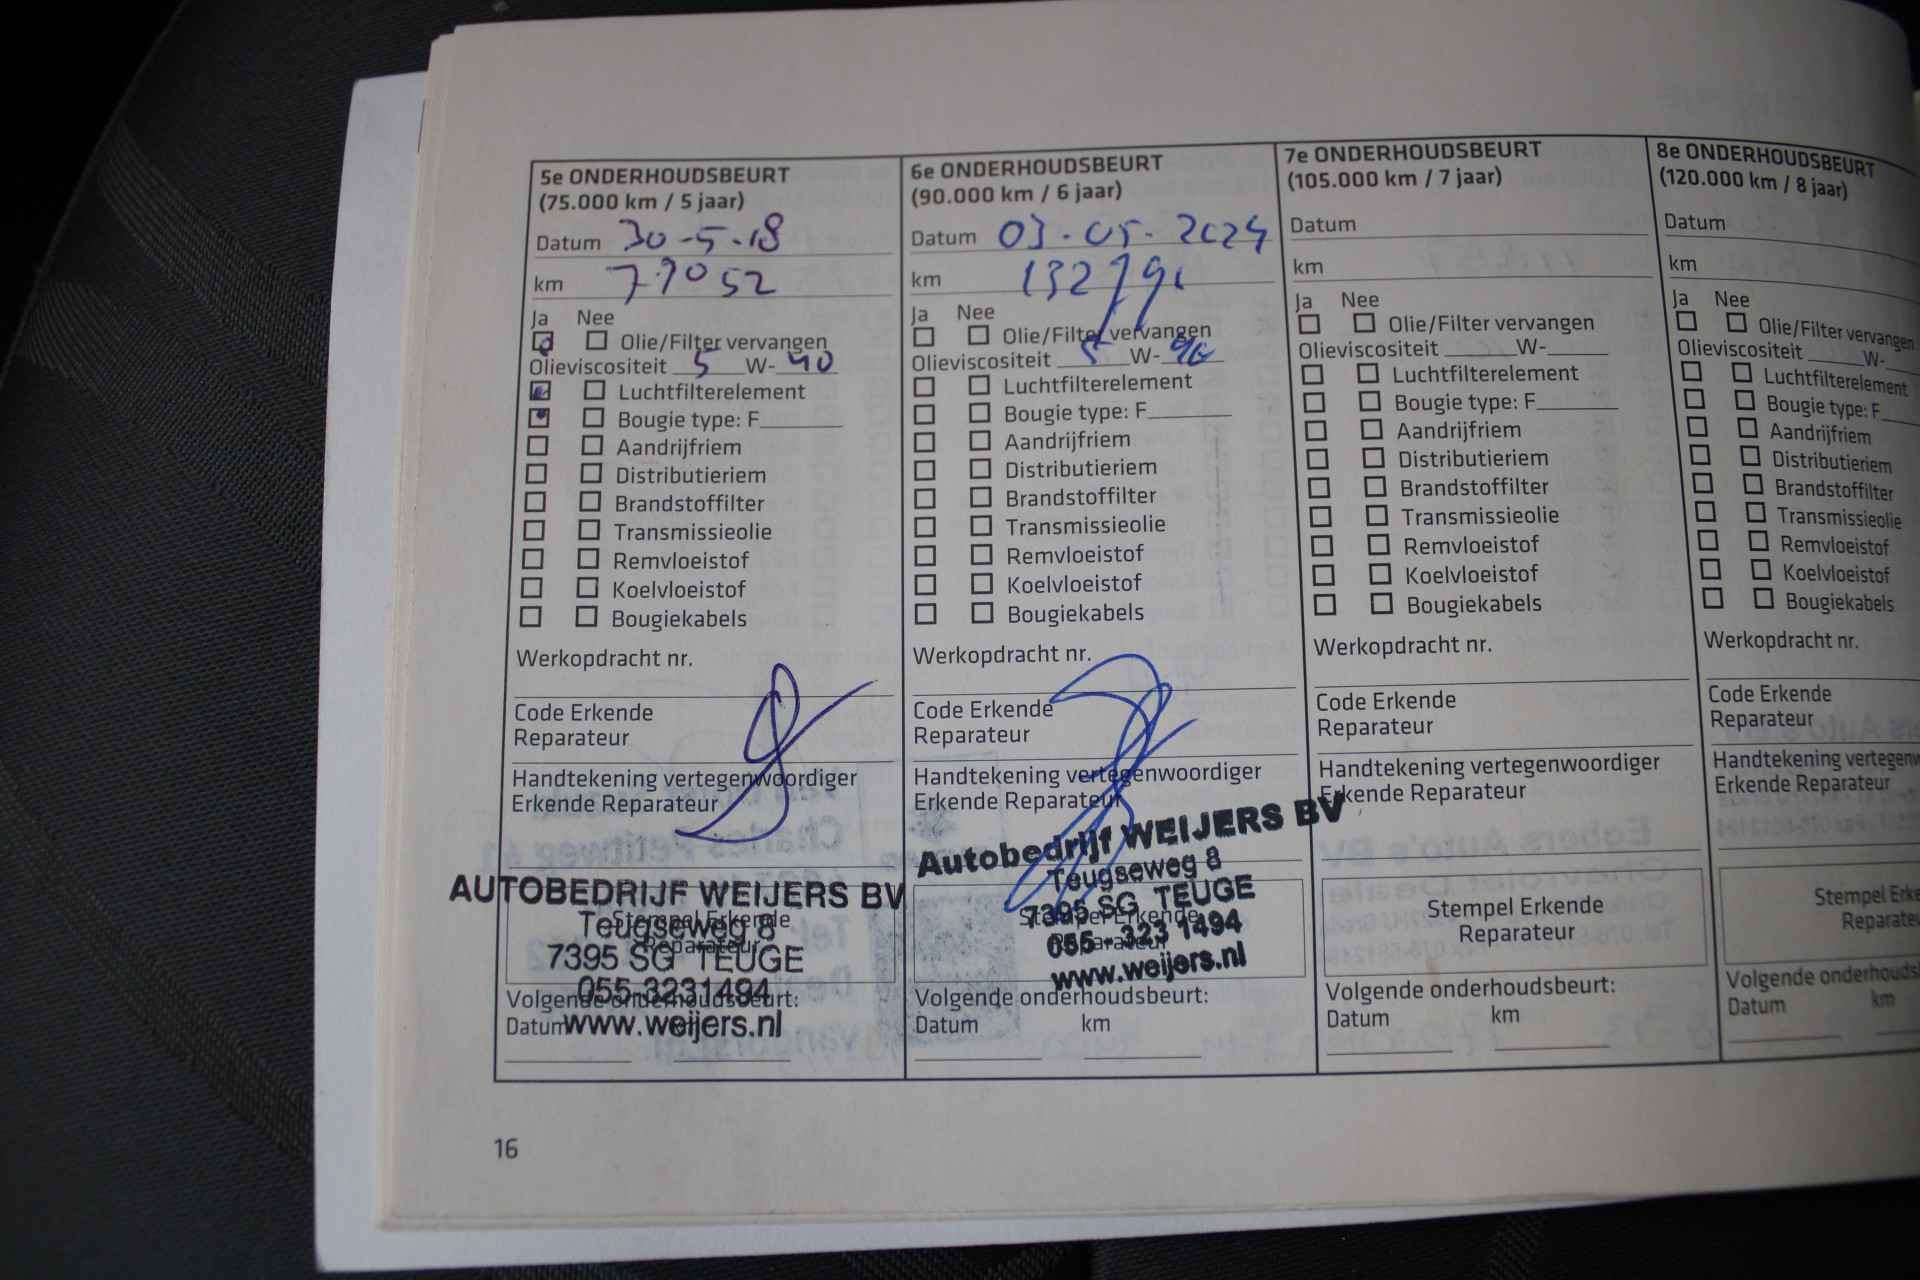 5e ONDERHOUDSBEURT
(75.000 km / 5 jaar)
Datum 30-5-18
km 77052
Ja Nee
Olie/Filter vervangen
Olieviscositeit 5 W-40
Luchtfilterelement
Bougie type: F
Aandrijfriem
Distributieriem
Brandstoffilter
Transmissieolie
Remvloeistof
Koelvloeistof
Bougiekabels
Werkopdracht nr.
Code Erkende
Reparateur
Handtekening vertegenwoordiger
Erkende Reparateur
AUTOBEDRIJF WEIJERS BV
Stempel Erkende
Teugseweg 8
Reparateur
7395 SG TEUGE
055-3231494
Volgende onderhoudsbeurt:
Datum km
www.weijers.nl
6e ONDERHOUDSBEURT
(90.000 km / 6 jaar)
Datum 03-05-2024
km
Ja Nee
Olie/Filter vervangen
Olieviscositeit 5 W-
Luchtfilterelement
Bougie type: F
Aandrijfriem
Distributieriem
Brandstoffilter
Transmissieolie
Remvloeistof
Koelvloeistof
Bougiekabels
Werkopdracht nr.
Code Erkende
Reparateur
Handtekening vertegenwoordiger
Erkende Reparateur
Autobedrijf WEIJERS BV
Teugseweg 8
7395 SG TEUGE
Stempel Erkende
055 - 323 1494
Reparateur
www.weijers.nl
Volgende onderhoudsbeurt:
Datum km
7e ONDERHOUDSBEURT
(105.000 km / 7 jaar)
Datum
km
Ja Nee
Olie/Filter vervangen
Olieviscositeit W-
Luchtfilterelement
Bougie type: F
Aandrijfriem
Distributieriem
Brandstoffilter
Transmissieolie
Remvloeistof
Koelvloeistof
Bougiekabels
Werkopdracht nr.
Code Erkende
Reparateur
Handtekening vertegenwoordiger
Erkende Reparateur
Stempel Erkende
Reparateur
Volgende onderhoudsbeurt:
Datum km
8e ONDERHOUDSBEURT
(120.000 km / 8 jaar)
Datum
km
Ja Nee
Olie/Filter vervangen
Olieviscositeit W-
Luchtfilterelement
Bougie type: F
Aandrijfriem
Distributieriem
Brandstoffilter
Transmissieolie
Remvloeistof
Koelvloeistof
Bougiekabels
Werkopdracht nr.
Code Erkende
Reparateur
Handtekening
Erkende Reparateur
Stempel
Volgende
Datum km
16